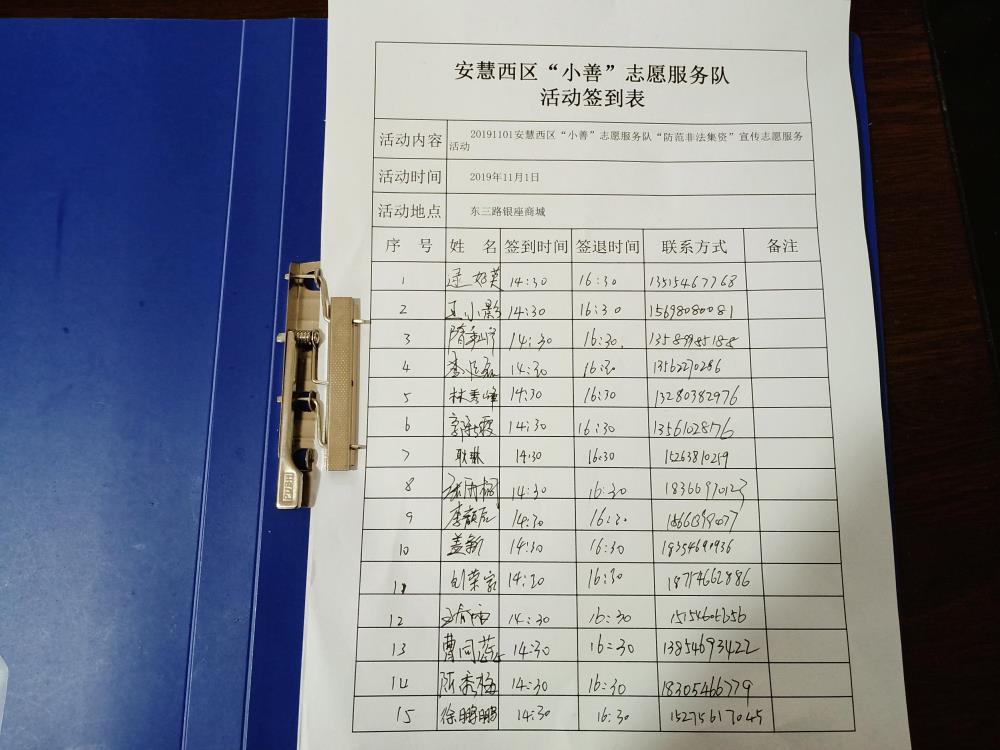 安慧西区“小善”志愿服务队
活动签到表
活动内容 20191101安慧西区“小善”志愿服务队“防范非法集资”宣传志愿服务
活动
活动时间 2019年11月1日
活动地点 东三路银座商城
序 号 姓 名 签到时间 签退时间 联系方式 备注
1 14:30 16:30 13515467768
2 王小影 14:30 16:30 15698080081
3 14:30 16:30.
4 14:30 16:30 13562270286
5 林秀峰 14:30 16:30 13280382976
6 14:30 16:30 13561028776
7 耿琳 14:30 16:30 15263810259
8 14:30 16:30 18366970123
9 14:30 16:30
10 盖新 14:30 16:30 18354690936
11 14:30 16:30 18714662886
12 14:30 16:30
13 曹同芯 14:30 16:30 13854693422
14 陈秀梅 14:30 16:30 18305466779
15 徐鹏鹏 14:30 16:30 15275617045
PUSH